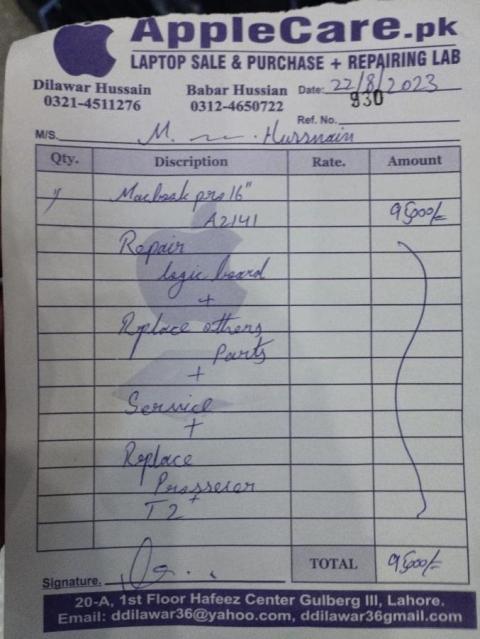 AppleCare.pk
LAPTOP SALE & PURCHASE + REPAIRING LAB
Dilawar Hussain Babar Hussian Date: 22/8/2023
0321-4511276 0312-4650722 930
Ref. No.
M/S. M. Hussnain
Qty. Discription Rate. Amount
Macbook pro 16"
A2141 95000/=
Repair
logic board
+
Replace others
Parts
+
Service
+
Replace
Prosseser
+
T2
TOTAL 95000/=
Signature.
20-A, 1st Floor Hafeez Center Gulberg III, Lahore.
Email: ddilawar36@yahoo.com, ddilawar36gmail.com